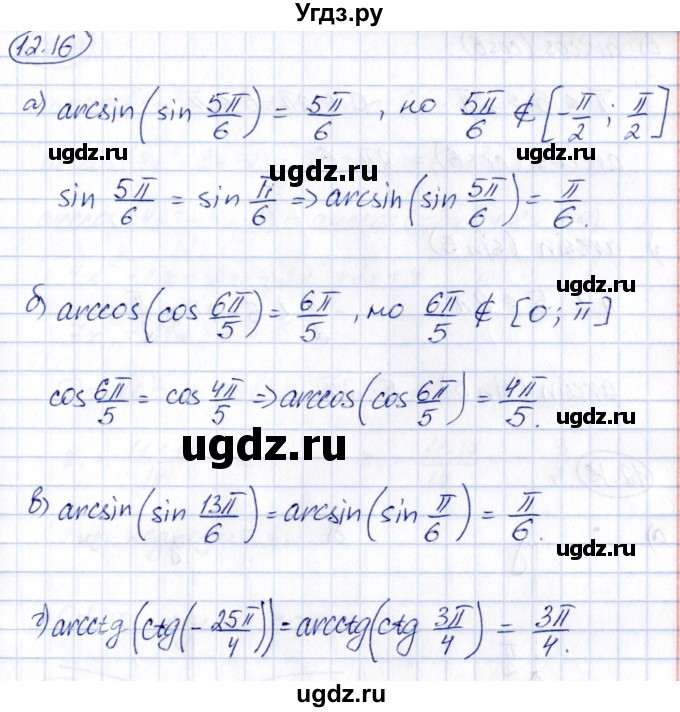 Угдз.ру
12.16
а) arcsin(sin 5π/6) = 5π/6 , но 5π/6 ∉ [-π/2 ; π/2]
ugdz.ru ugdz.ru ugdz.ru
sin 5π/6 = sin π/6 => arcsin(sin 5π/6) = π/6.
ugdz.ru
б) arccos(cos 6π/5) = 6π/5 , но 6π/5 ∉ [0 ; π]
cos 6π/5 = cos 4π/5 => arccos(cos 6π/5) = 4π/5.
ugdz.ru ugdz.ru
в) arcsin(sin 13π/6) = arcsin(sin π/6) = π/6.
ugdz.ru
г) arcctg(ctg(-25π/4)) = arcctg(ctg 3π/4) = 3π/4.
ugdz.ru ugdz.ru
ugdz.ru